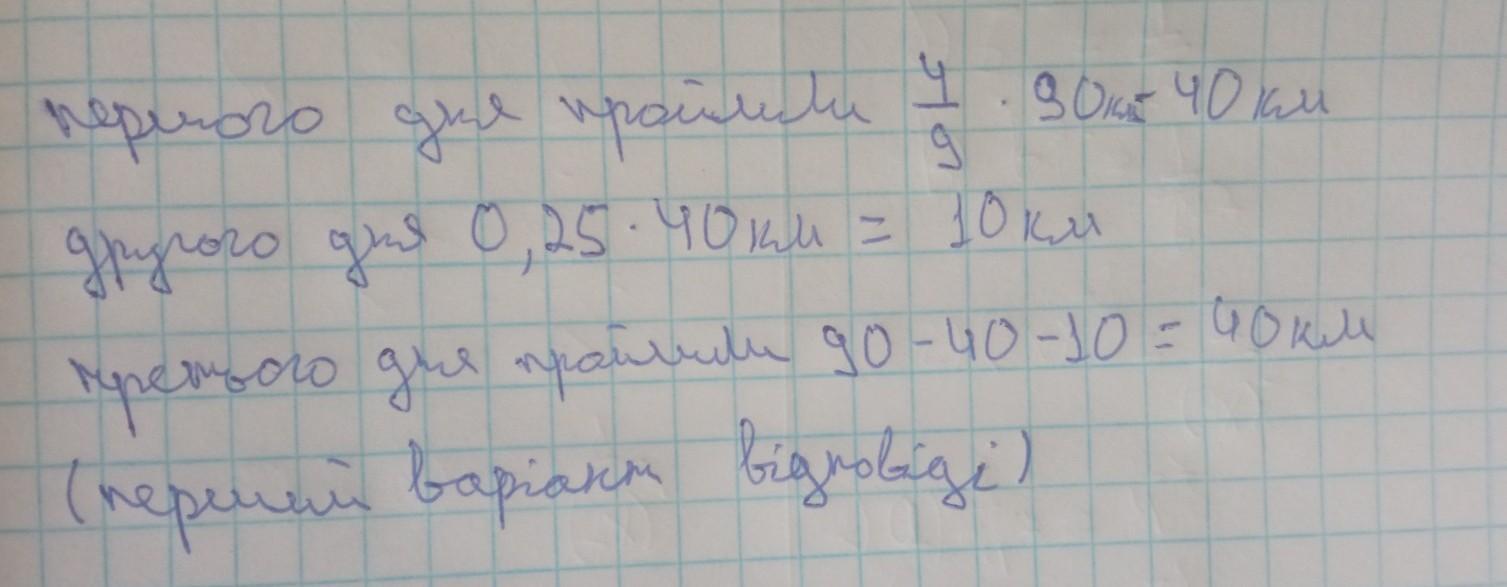 першого дня пройшли 4/9 · 90км = 40 км
другого дня 0,25 · 40 км = 10 км
третього дня пройшли 90 - 40 - 10 = 40 км
(перший варіант відповіді)